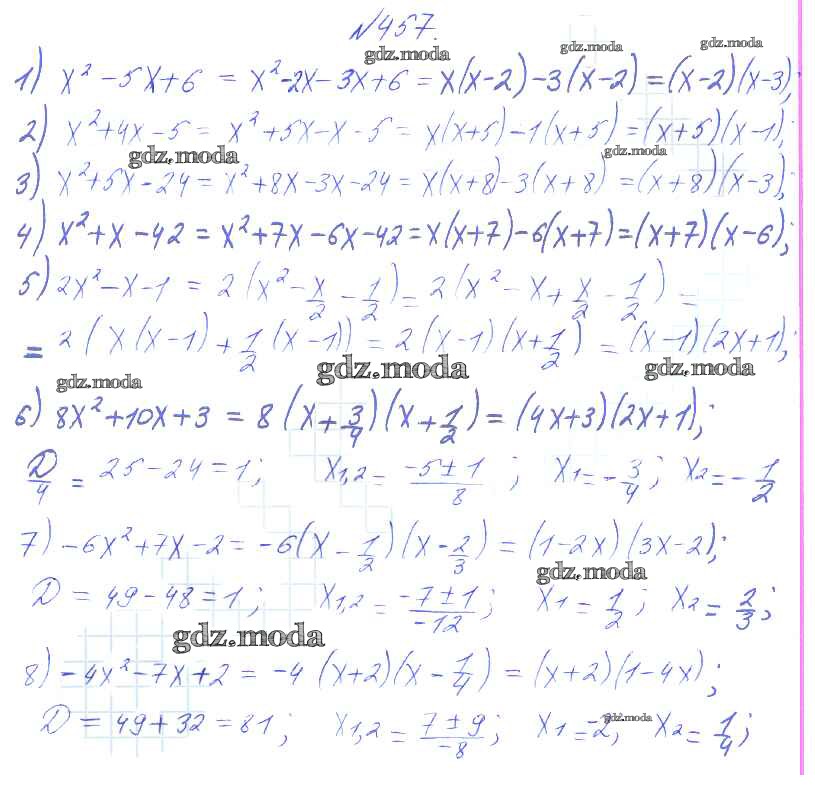 №457.
gdz.moda gdz.moda gdz.moda
1) x² - 5x + 6 = x² - 2x - 3x + 6 = x(x - 2) - 3(x - 2) = (x - 2)(x - 3);
2) x² + 4x - 5 = x² + 5x - x - 5 = x(x + 5) - 1(x + 5) = (x + 5)(x - 1);
gdz.moda gdz.moda
3) x² + 5x - 24 = x² + 8x - 3x - 24 = x(x + 8) - 3(x + 8) = (x + 8)(x - 3);
4) x² + x - 42 = x² + 7x - 6x - 42 = x(x + 7) - 6(x + 7) = (x + 7)(x - 6);
5) 2x² - x - 1 = 2(x² - x/2 - 1/2) = 2(x² - x + x/2 - 1/2) =
= 2(x(x - 1) + 1/2(x - 1)) = 2(x - 1)(x + 1/2) = (x - 1)(2x + 1);
gdz.moda gdz.moda gdz.moda
6) 8x² + 10x + 3 = 8(x + 3/4)(x + 1/2) = (4x + 3)(2x + 1);
D/4 = 25 - 24 = 1; x1,2 = (-5 ± 1)/8; x1 = -3/4; x2 = -1/2
7) -6x² + 7x - 2 = -6(x - 1/2)(x - 2/3) = (1 - 2x)(3x - 2);
gdz.moda
D = 49 - 48 = 1; x1,2 = (-7 ± 1)/-12; x1 = 1/2; x2 = 2/3;
gdz.moda
8) -4x² - 7x + 2 = -4(x + 2)(x - 1/4) = (x + 2)(1 - 4x);
D = 49 + 32 = 81; x1,2 = (7 ± 9)/-8; x1 = -2; x2 = 1/4;
gdz.moda